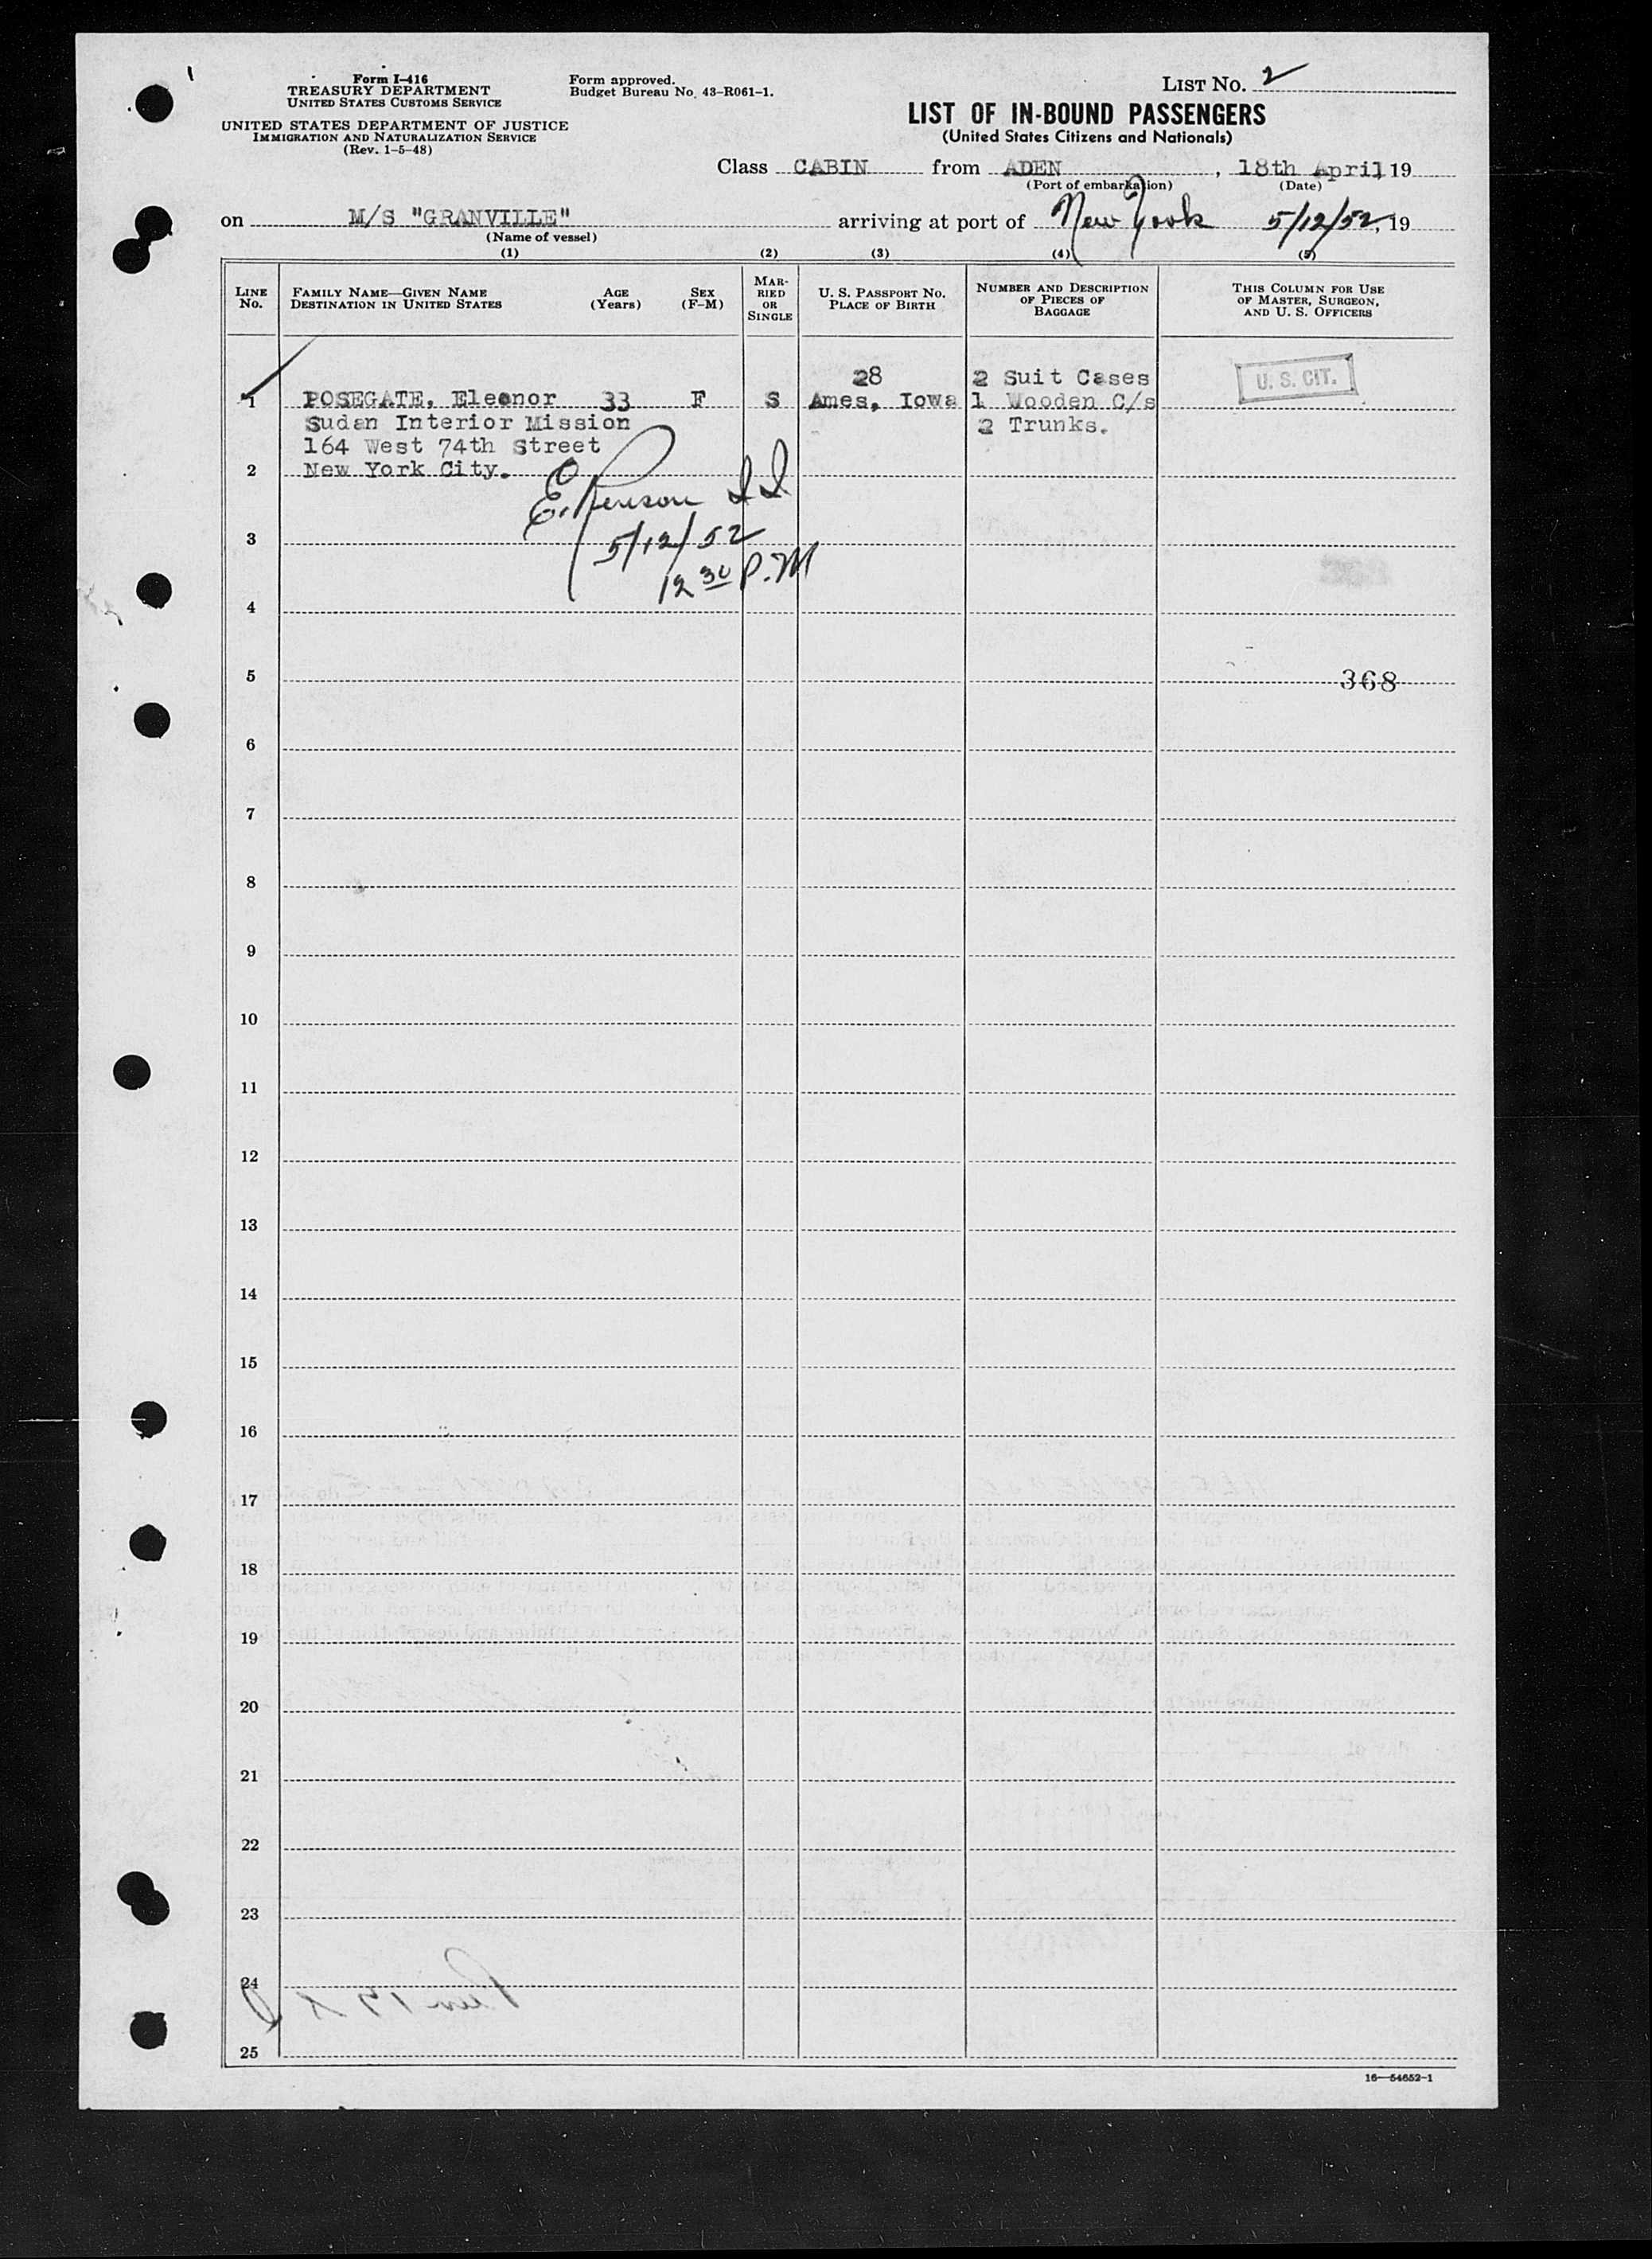 Form I-416
TREASURY DEPARTMENT
UNITED STATES CUSTOMS SERVICE
UNITED STATES DEPARTMENT OF JUSTICE
IMMIGRATION AND NATURALIZATION SERVICE
(Rev. 1-5-48)
Form approved.
Budget Bureau No. 43-R061-1.
LIST No. 2
LIST OF IN-BOUND PASSENGERS
(United States Citizens and Nationals)
Class CABIN from ADEN, 18th April, 19
(Port of embarkation) (Date)
on M/S "GRANVILLE" arriving at port of New York 5/12/52, 19
(Name of vessel)
(1) (2) (3) (4) (5)
LINE No.
FAMILY NAME—GIVEN NAME
DESTINATION IN UNITED STATES
AGE (Years)
SEX (F-M)
MARRIED OR SINGLE
U. S. PASSPORT NO.
PLACE OF BIRTH
NUMBER AND DESCRIPTION OF PIECES OF BAGGAGE
THIS COLUMN FOR USE OF MASTER, SURGEON, AND U. S. OFFICERS
28 2 Suit Cases U. S. CIT.
1 POSEGATE, Eleonor 33 F S Ames, Iowa 1 Wooden C/s
Sudan Interior Mission 2 Trunks.
164 West 74th Street
2 New York City.
5/12/52
3
12 30 P.M
4
5 368
6
7
8
9
10
11
12
13
14
15
16
17
18
19
20
21
22
23
24
25
16—54652-1